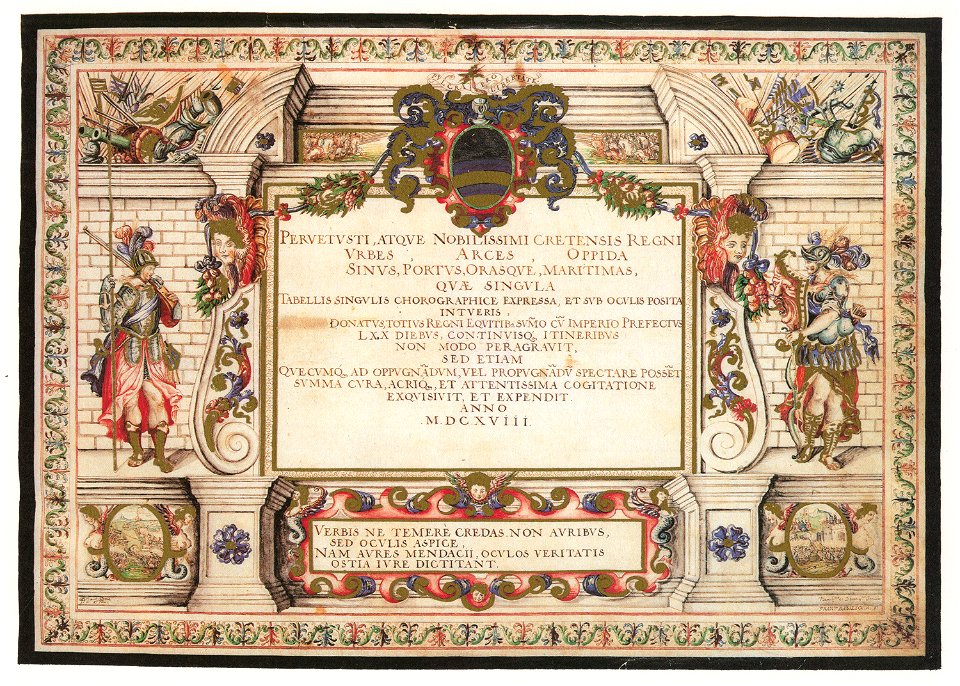 PERVETVSTI, ATQVE NOBILISSIMI CRETENSIS REGNI
VRBES, ARCES, OPPIDA
SINVS, PORTVS, ORASQVE, MARITIMAS,
QVÆ SINGVLA
TABELLIS SINGVLIS CHOROGRAPHICE EXPRESSA, ET SVB OCVLIS POSITA
INTVERIS,
DONATVS, TOTIVS REGNI EQVITIB⁹ SVM̃O CṼ IMPERIO PREFECTVS
LXX DIEBVS, CONTINVISQ, ITINERIBVS
NON MODO PERAGRAVIT,
SED ETIAM
QVECVMQ, AD OPPVGNÃDVM, VEL PROPVGNÃDṼ SPECTARE POSSẼT
SVMMA CVRA, ACRIQ, ET ATTENTISSIMA COGITATIONE
EXQVISIVIT, ET EXPENDIT.
ANNO
.M.DCXVIII.
VERBIS NE TEMERÈ CREDAS. NON AVRIBVS,
SED OCVLIS ASPICE,
NAM AVRES MENDACII, OCVLOS VERITATIS
OSTIA IVRE DICTITANT.